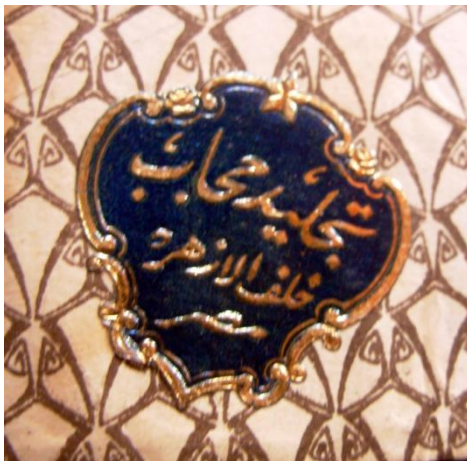 تجليد حجاب
خلف الازهر
مصر